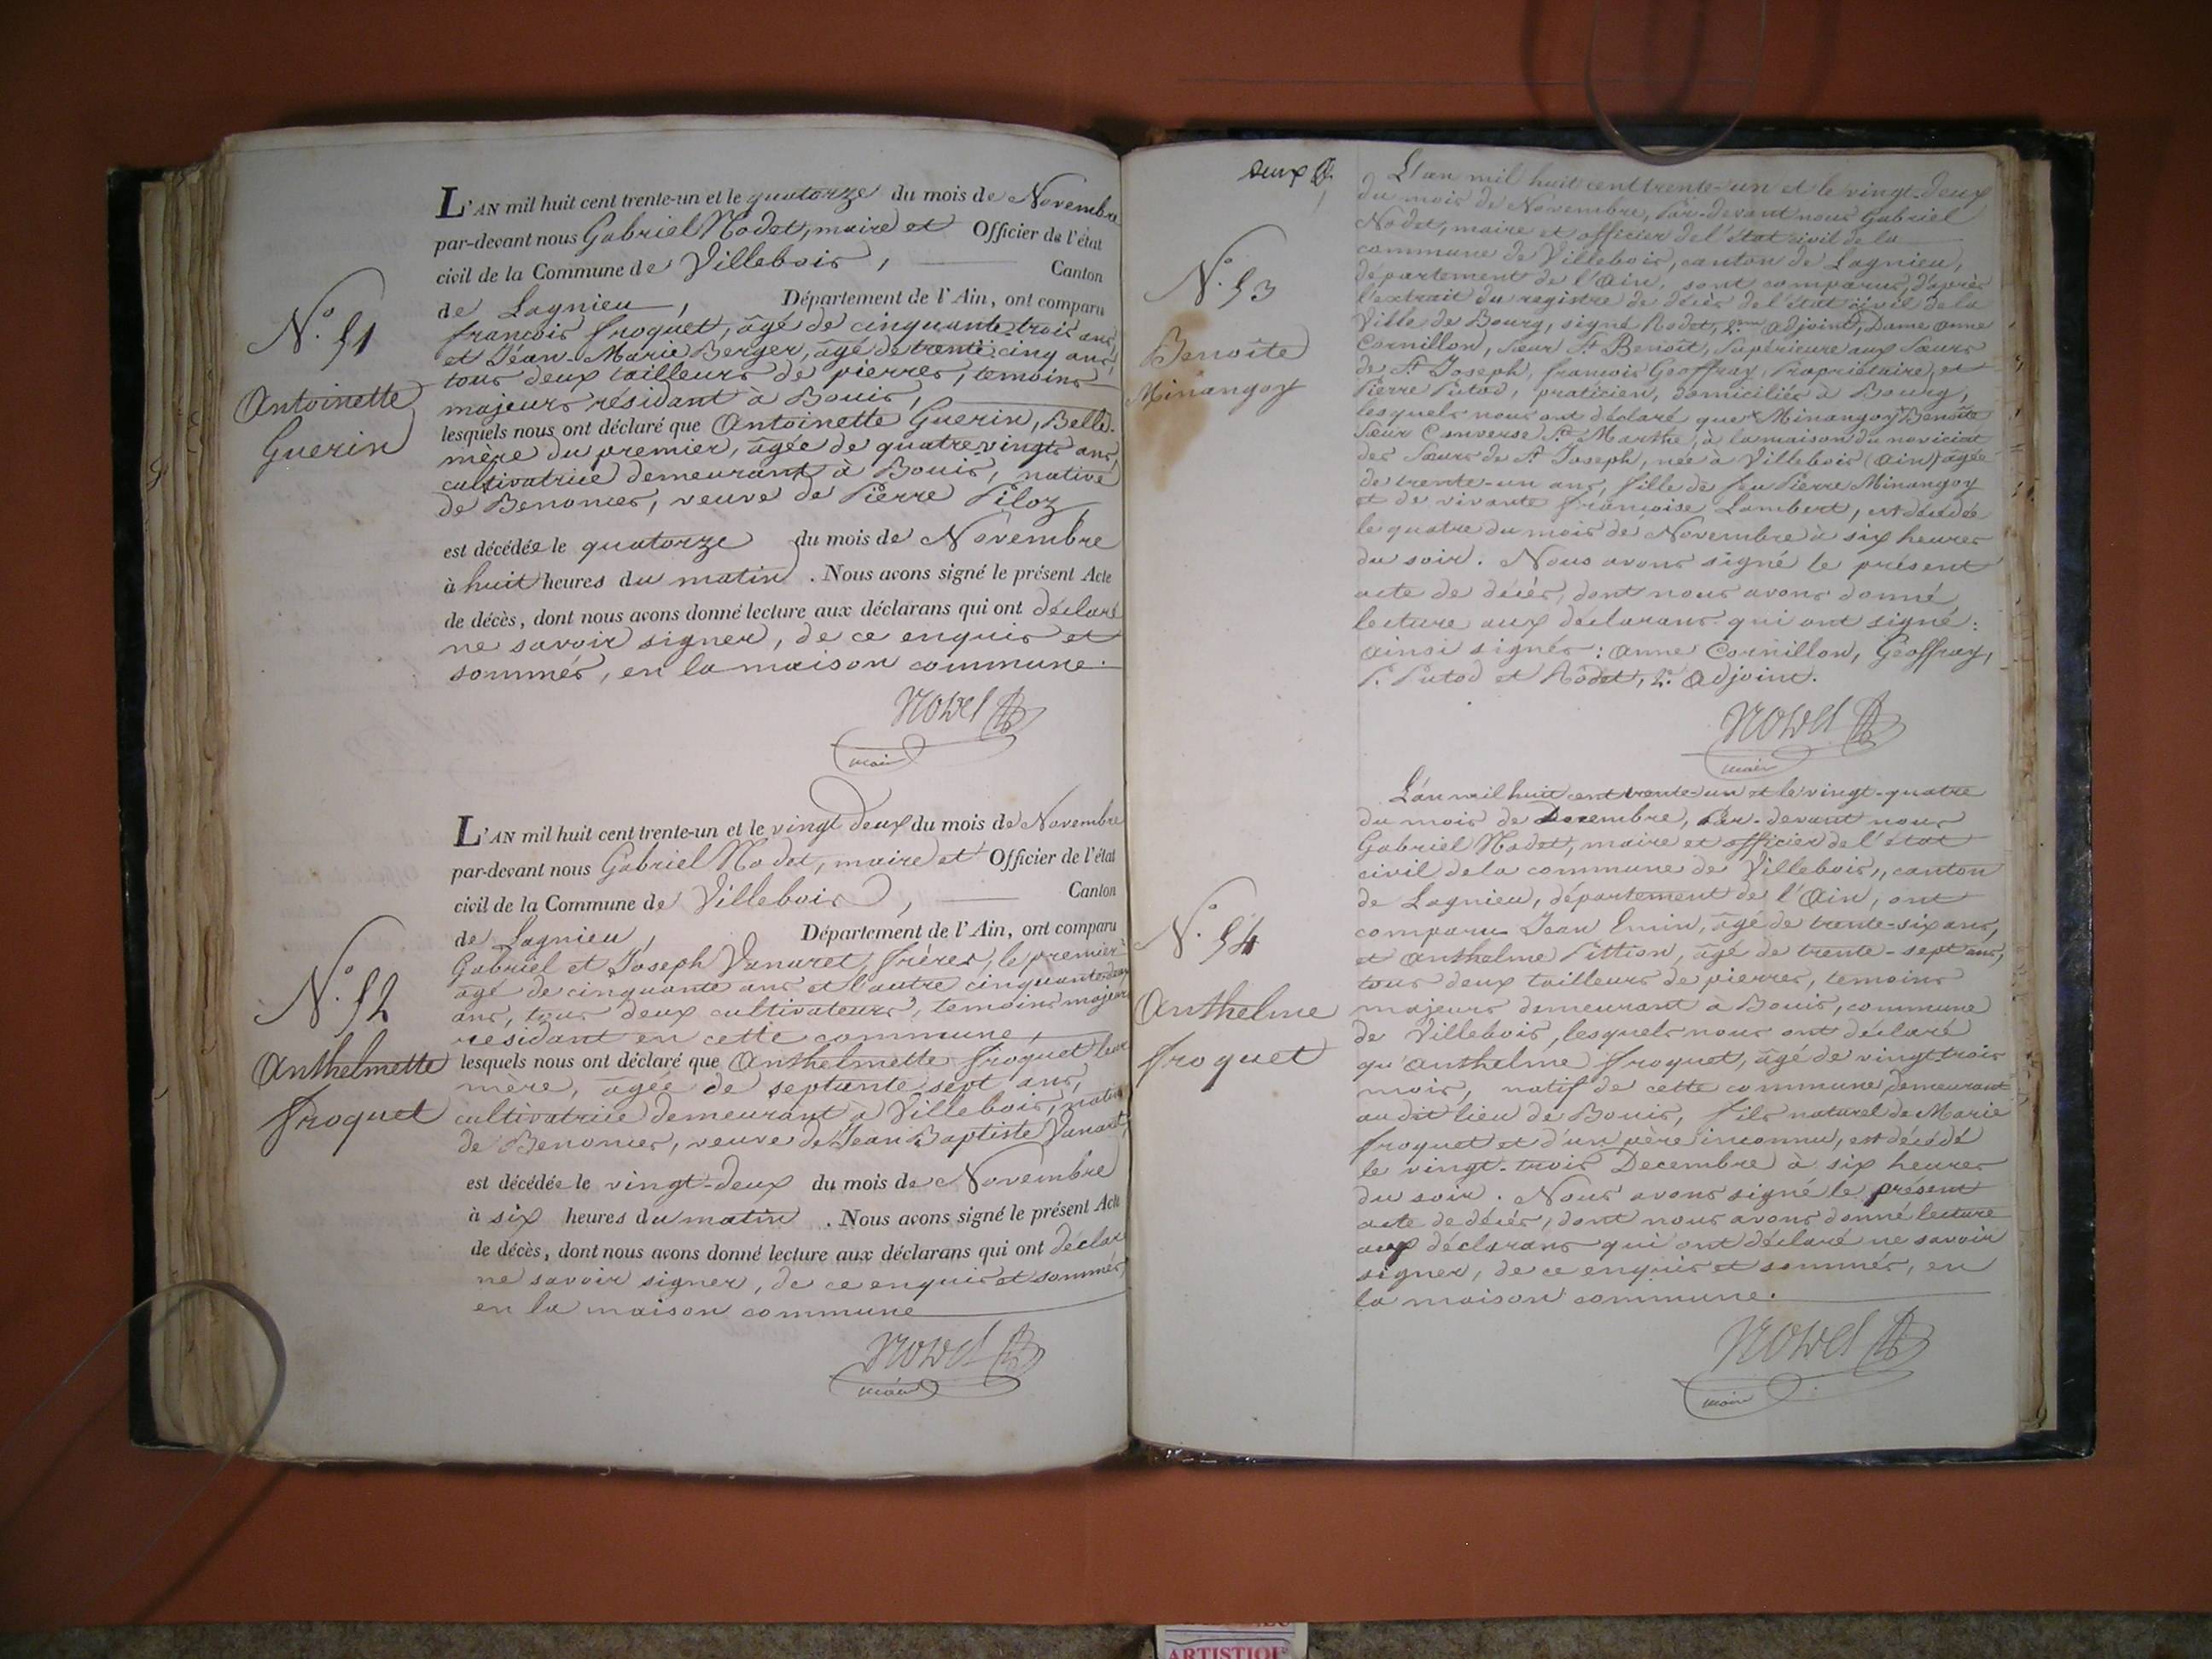 N.° 51
Antoinette
Guerin
L'AN mil huit cent trente-un et le quatorze du mois de Novembre
par-devant nous Gabriel Nodet, maire et Officier de l'état
civil de la Commune de Villebois, Canton
de Lagnieu, Département de l'Ain, ont comparu
françois froquet, âgé de cinquante trois ans,
et Jéan-Marie Berger, âgé de trente cinq ans,
tous deux tailleurs de pierres, temoins
majeurs résidant à Bouis,
lesquels nous ont déclaré que Antoinette Guerin, Belle-
mère du premier, âgée de quatre vingts ans,
cultivatrice demeurant à Bouis, native
de Benonces, veuve de Pierre Piloz
est décédée le quatorze du mois de Novembre
à huit heures du matin. Nous avons signé le présent Acte
de décès, dont nous avons donné lecture aux déclarans qui ont déclaré
ne savoir signer, de ce enquis et
sommés, en la maison commune.
Nodet
maire
N.° 52
Anthelmette
froquet
L'AN mil huit cent trente-un et le vingt deux du mois de Novembre
par-devant nous Gabriel Nodet, maire et Officier de l'état
civil de la Commune de Villebois, Canton
de Lagnieu, Département de l'Ain, ont comparu
Gabriel et Joseph Vanaret, frères, le premier
âgé de cinquante ans et l'autre cinquante deux
ans, tous deux cultivateurs, temoins majeurs
residant en cette commune,
lesquels nous ont déclaré que Anthelmette froquet leur
mère, âgée de septante sept ans,
cultivatrice demeurant à Villebois, native
de Benonces, veuve de Jean Baptiste Vanaret,
est décédée le vingt-deux du mois de Novembre
à six heures du matin. Nous avons signé le présent Acte
de décès, dont nous avons donné lecture aux déclarans qui ont déclaré
ne savoir signer, de ce enquis et sommés,
en la maison commune
Nodet
maire
deux
N.° 53
Benoîte
Minangoy
L'an mil huit cent trente-un et le vingt-deux
du mois de Novembre, Par-devant nous Gabriel
Nodet, maire et officier de l'état civil de la
commune de Villebois, canton de Lagnieu,
département de l'Ain, sont comparus, d'après
l'extrait du registre de décès de l'état civil de la
Ville de Bourg, signé Rodet, 2.me adjoint, Dame Anne
Cornillon, Sœur St Benoît, Supérieure aux Sœurs
de St Joseph, françois Geoffray, Propriétaire, et
Pierre Putod, praticien, domiciliés à Bourg,
lesquels nous ont déclaré que Minangoy Benoîte
Sœur Converse Ste Marthe, à la maison du noviciat
des Sœurs de St Joseph, née à Villebois (Ain) âgée
de trente-un ans, fille de feu Pierre Minangoy
et de vivante françoise Lambert, est décédée
le quatre du mois de Novembre à six heures
du soir. Nous avons signé le présent
acte de décès, dont nous avons donné
lecture aux déclarans qui ont signé:
ainsi signés: Anne Cornillon, Geoffray,
P. Putod et Rodet, 2.e adjoint.
Nodet
maire
N.° 54
Anthelme
froquet
L'an mil huit cent trente-un et le vingt-quatre
du mois de Decembre, Par-devant nous
Gabriel Nodet, maire et officier de l'état
civil de la commune de Villebois, canton
de Lagnieu, département de l'Ain, ont
comparu Jean Emin, âgé de trente-six ans,
et Anthelme Pittion, âgé de trente-sept ans,
tous deux tailleurs de pierres, temoins
majeurs demeurant à Bouis, commune
de Villebois, lesquels nous ont déclaré
qu'Anthelme froquet, âgé de vingt trois
mois, natif de cette commune, demeurant
audit lieu de Bouis, fils naturel de Marie
froquet et d'un père inconnu, est décédé
le vingt-trois Decembre à six heures
du soir. Nous avons signé le présent
acte de décès, dont nous avons donné lecture
aux déclarans qui ont déclaré ne savoir
signer, de ce enquis et sommés, en
la maison commune.
Nodet
maire
ARTISTIQU